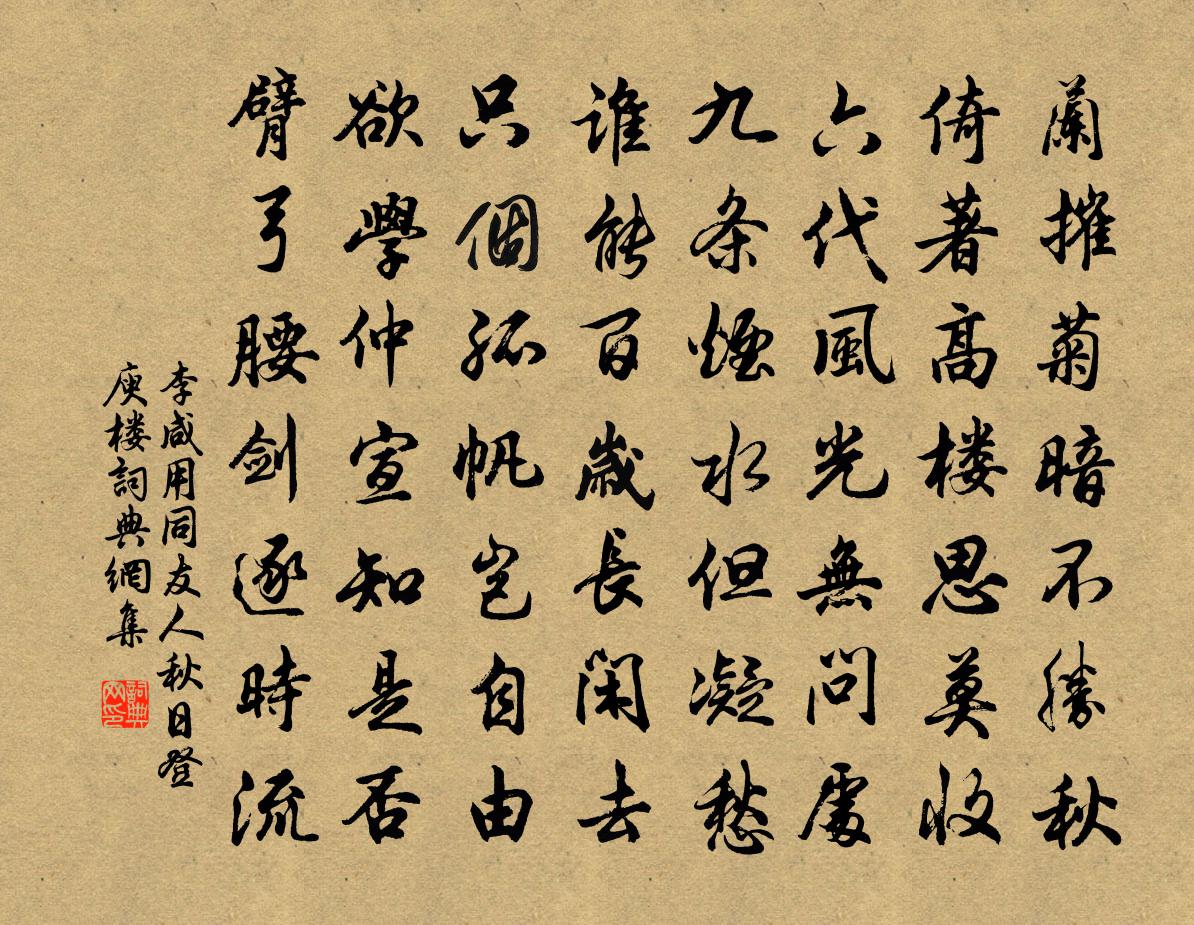 蘭摧菊暗不勝秋
倚著高楼思莫收
六代風光無問處
九条煙水但凝愁
誰能百歲長閑去
只個孤帆豈自由
欲學仲宣知是否
臂弓腰劍逐時流
李咸用同友人秋日登
庾楼詞典網集
詞典
网印